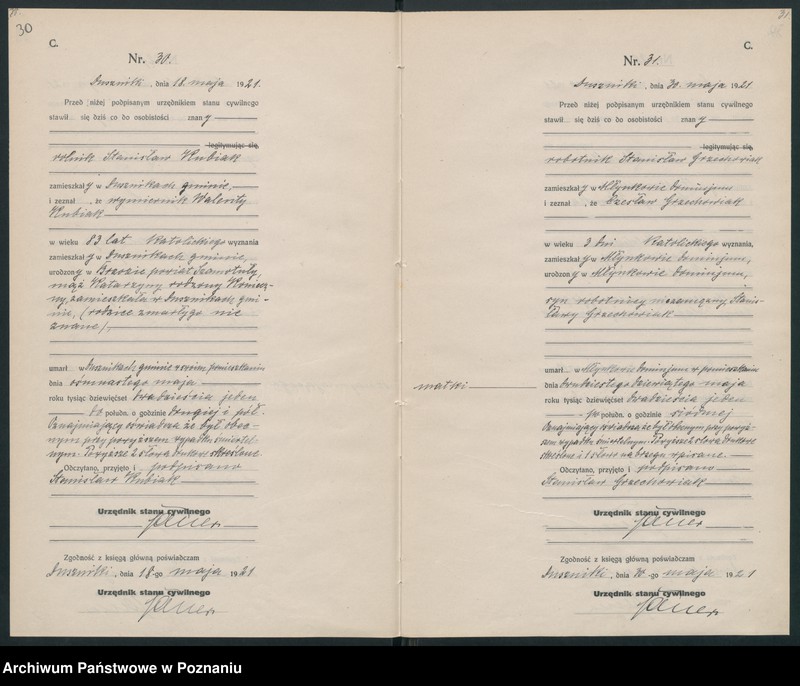 30
C.
Nr. 30.
Duszniki, dnia 18. maja 1921.
Przed niżej podpisanym urzędnikiem stanu cywilnego
stawił się dziś co do osobistości znany
legitymując się,
rolnik Stanisław Kubiak
zamieszkały w Dusznikach gminie,
i zeznał, że wymiernik Walenty
Kubiak
w wieku 83 lat Katolickiego wyznania
zamieszkały w Dusznikach gminie,
urodzony w Brzozie powiat Szamotuły,
mąż Katarzyny rodzonej
zamieszkała w Dusznikach gmi-
nie, (rodzice zmarłego nie
znane)
umarł w Dusznikach gminie w swoim pomieszkaniu
dnia ósmnastego maja
roku tysiąc dziewięćset dwadzieścia jeden
po połudn. o godzinie drugiej i pół.
Oznajmiający oświadcza że był obec-
nym przy powyższem wypadku śmiertel-
nym. Powyższe 2 słowa druków skreślone
Odczytano, przyjęto i podpisano
Stanisław Kubiak
Urzędnik stanu cywilnego
Zgodność z księgą główną poświadczam
Duszniki, dnia 18-go maja 1921
Urzędnik stanu cywilnego
31.
C.
Nr. 31.
Duszniki, dnia 30. maja 1921
Przed niżej podpisanym urzędnikiem stanu cywilnego
stawił się dziś co do osobistości znany
legitymując się,
robotnik Stanisław Grzechowiak
zamieszkały w Młynkowie dominjum
i zeznał, że Czesław Grzechowiak
w wieku 3 dni Katolickiego wyznania,
zamieszkały w Młynkowie dominjum,
urodzony w Młynkowie dominjum,
syn robotnicy niezamężnej Stani-
sławy Grzechowiak
umarł w Młynkowie dominjum w pomieszkaniu
matki
dnia dwudziestego dziewiątego maja
roku tysiąc dziewięćset dwadzieścia jeden
po połudn. o godzinie siódmej
Oznajmiający oświadcza że był obecnym przy powyż-
szem wypadku śmiertelnym. Powyższe 2 słowa druków
skreślone i 1 słowo na brzegu wpisane.
Odczytano, przyjęto i podpisano
Stanisław Grzechowiak
Urzędnik stanu cywilnego
Zgodność z księgą główną poświadczam
Duszniki, dnia 30-go maja 1921
Urzędnik stanu cywilnego
Archiwum Państwowe w Poznaniu